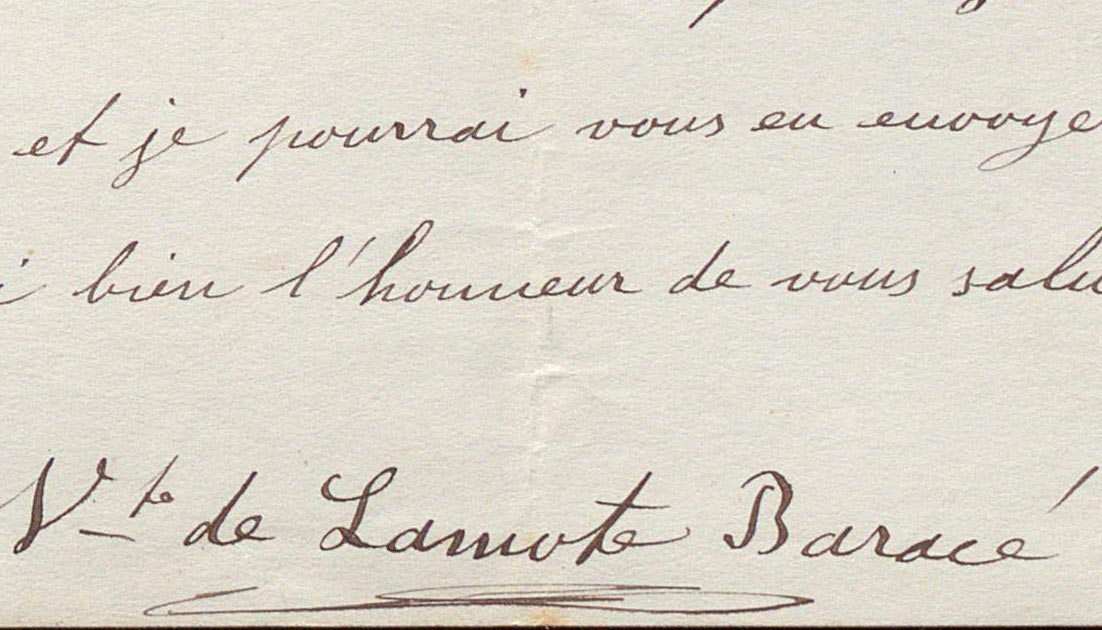 et je pourrai vous en envoye
i bien l'honneur de vous salu
Vte de Lamote Baracé